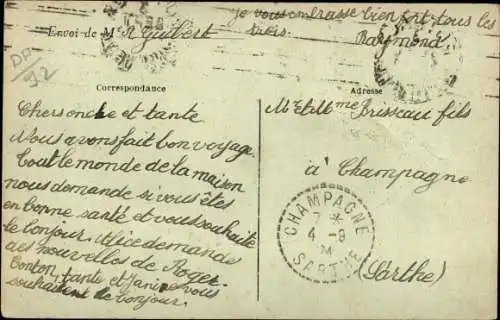 je vous embrasse bien fort tous les
trois. Raymond.
Envoi de M R Guibert
DD-
92
Correspondance
Cher oncle et tante
Nous avons fait bon voyage.
Tout le monde de la maison
nous demande si vous êtes
en bonne santé et vous souhaite
le bonjour. Alice demande
des nouvelles de Roger.
Tonton, tante et Janine vous
souhaitent le bonjour.
Adresse
Mr et Mme Brisseau fils
à Champagne
(Sarthe)
CHAMPAGNE
7 *
4 - 8
SARTHE